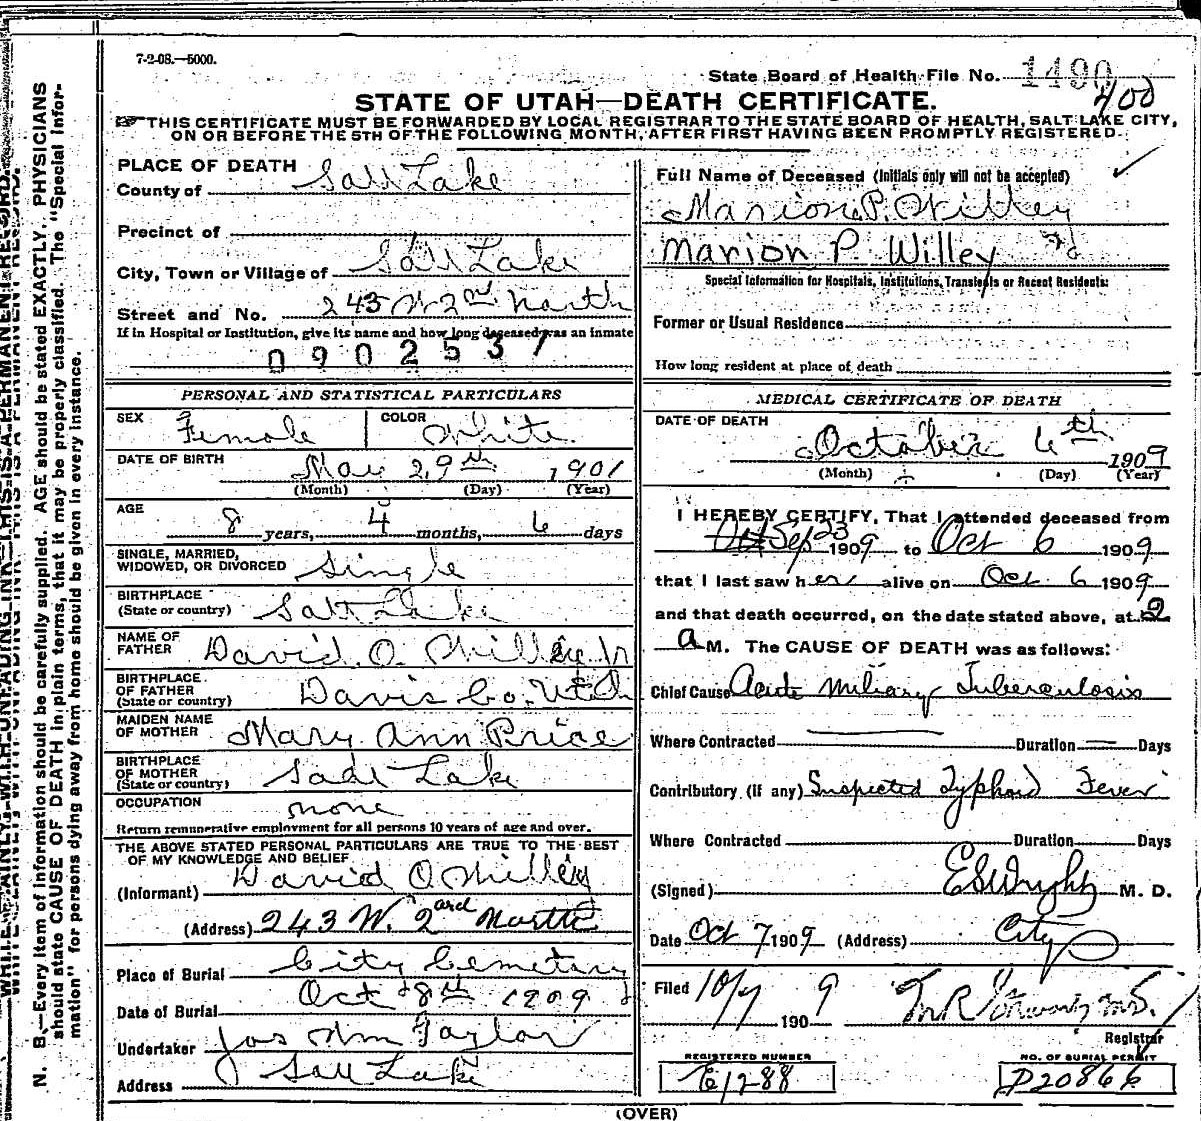 7-2-08.—5000.
State Board of Health File No. 1490
400
STATE OF UTAH—DEATH CERTIFICATE.
THIS CERTIFICATE MUST BE FORWARDED BY LOCAL REGISTRAR TO THE STATE BOARD OF HEALTH, SALT LAKE CITY,
ON OR BEFORE THE 5TH OF THE FOLLOWING MONTH, AFTER FIRST HAVING BEEN PROMPTLY REGISTERED.
PLACE OF DEATH
County of Salt Lake
Precinct of
City, Town or Village of Salt Lake
Street and No. 243 W 2nd North
If in Hospital or Institution, give its name and how long deceased was an inmate
0902537
PERSONAL AND STATISTICAL PARTICULARS
SEX Female COLOR White
DATE OF BIRTH May 29th 1901
(Month) (Day) (Year)
AGE 8 years, 4 months, 6 days
SINGLE, MARRIED,
WIDOWED, OR DIVORCED Single
BIRTHPLACE
(State or country) Salt Lake
NAME OF
FATHER David O. Willey Jr
BIRTHPLACE
OF FATHER
(State or country) Davis Co. Utah
MAIDEN NAME
OF MOTHER Mary Ann Price
BIRTHPLACE
OF MOTHER
(State or country) Salt Lake
OCCUPATION none
Return remunerative employment for all persons 10 years of age and over.
THE ABOVE STATED PERSONAL PARTICULARS ARE TRUE TO THE BEST
OF MY KNOWLEDGE AND BELIEF
(Informant) David O. Willey
(Address) 243 W. 2nd North
Place of Burial City Cemetary
Date of Burial Oct 8th 1909
Undertaker Jos Wm Taylor
Address Salt Lake
Full Name of Deceased (Initials only will not be accepted)
Marion P. Willey
Marion P. Willey
Special Information for Hospitals, Institutions, Transients or Recent Residents:
Former or Usual Residence
How long resident at place of death
MEDICAL CERTIFICATE OF DEATH
DATE OF DEATH
October 6th 1909
(Month) (Day) (Year)
I HEREBY CERTIFY, That I attended deceased from
Sep 23 1909 to Oct 6 1909
that I last saw her alive on Oct 6 1909
and that death occurred, on the date stated above, at 2
a M. The CAUSE OF DEATH was as follows:
Chief Cause Acute Miliary Tuberculosis
Where Contracted Duration Days
Contributory (if any) Suspected Typhoid Fever
Where Contracted Duration Days
(Signed) E S Wright M. D.
Date Oct 7 1909 (Address) City
Filed 10/7 1909
Registrar
REGISTERED NUMBER
E1288
NO. OF BURIAL PERMIT
D20866
(OVER)
N. B.—Every item of information should be carefully supplied. AGE should be stated EXACTLY. PHYSICIANS
should state CAUSE OF DEATH in plain terms, that it may be properly classified. The "Special Infor-
mation" for persons dying away from home should be given in every instance.